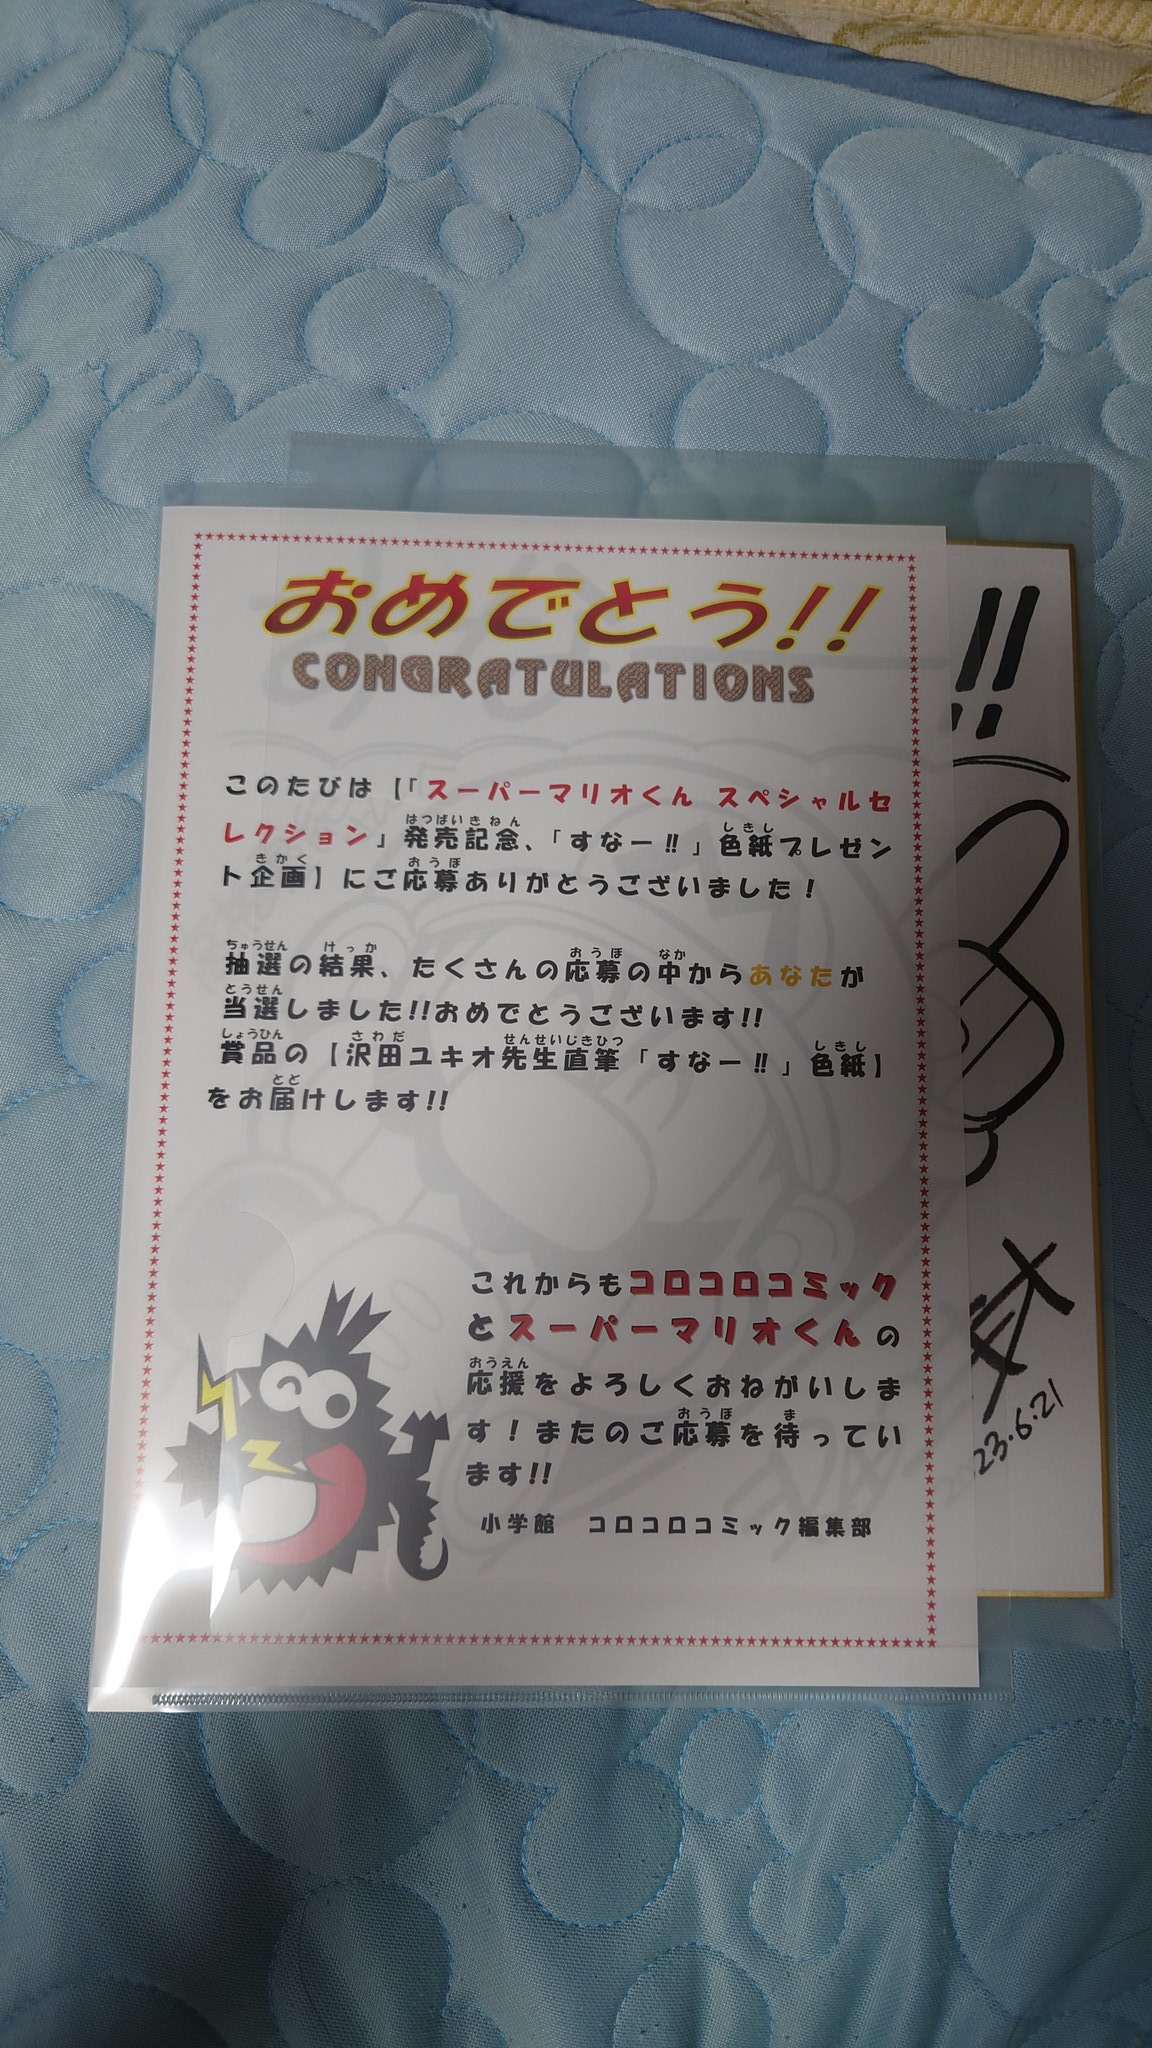 おめでとう!!
CONGRATULATIONS
このたびは【「スーパーマリオくん スペシャルセ
レクション」発売記念、「すなー!!」色紙プレゼン
ト企画】にご応募ありがとうございました!
抽選の結果、たくさんの応募の中からあなたが
当選しました!!おめでとうございます!!
賞品の【沢田ユキオ先生直筆「すなー!!」色紙】
をお届けします!!
これからもコロコロコミック
とスーパーマリオくんの
応援をよろしくおねがいしま
す!またのご応募を待ってい
ます!!
小学館 コロコロコミック編集部
!!
2023.6.21